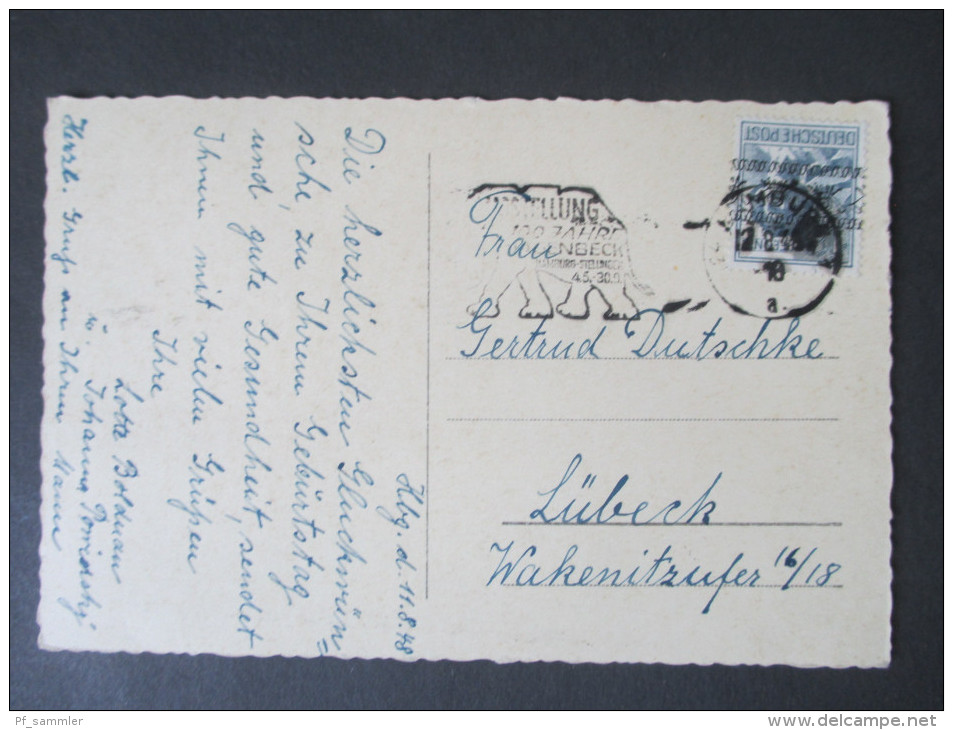 Hbg. d. 11.8.48
Die herzlichsten Glückwün=
sche, zu Ihrem Gebürtstag
und gute Gesundheit, sendet
Ihnen mit vielen Grüßen
Ihre
Lotte Boldman
ü. Johanna
Herzl. Gruß an Ihren Mann
DEUTSCHE POST
STELLUNG
100 JAHRE
ENBECK
HAMBURG-STELLINGEN
4.5.-30.9.
Frau
Gertrud Dutschke
Lübeck
Wakenitzufer 16/18
Pf_sammler
www.delcampe.net